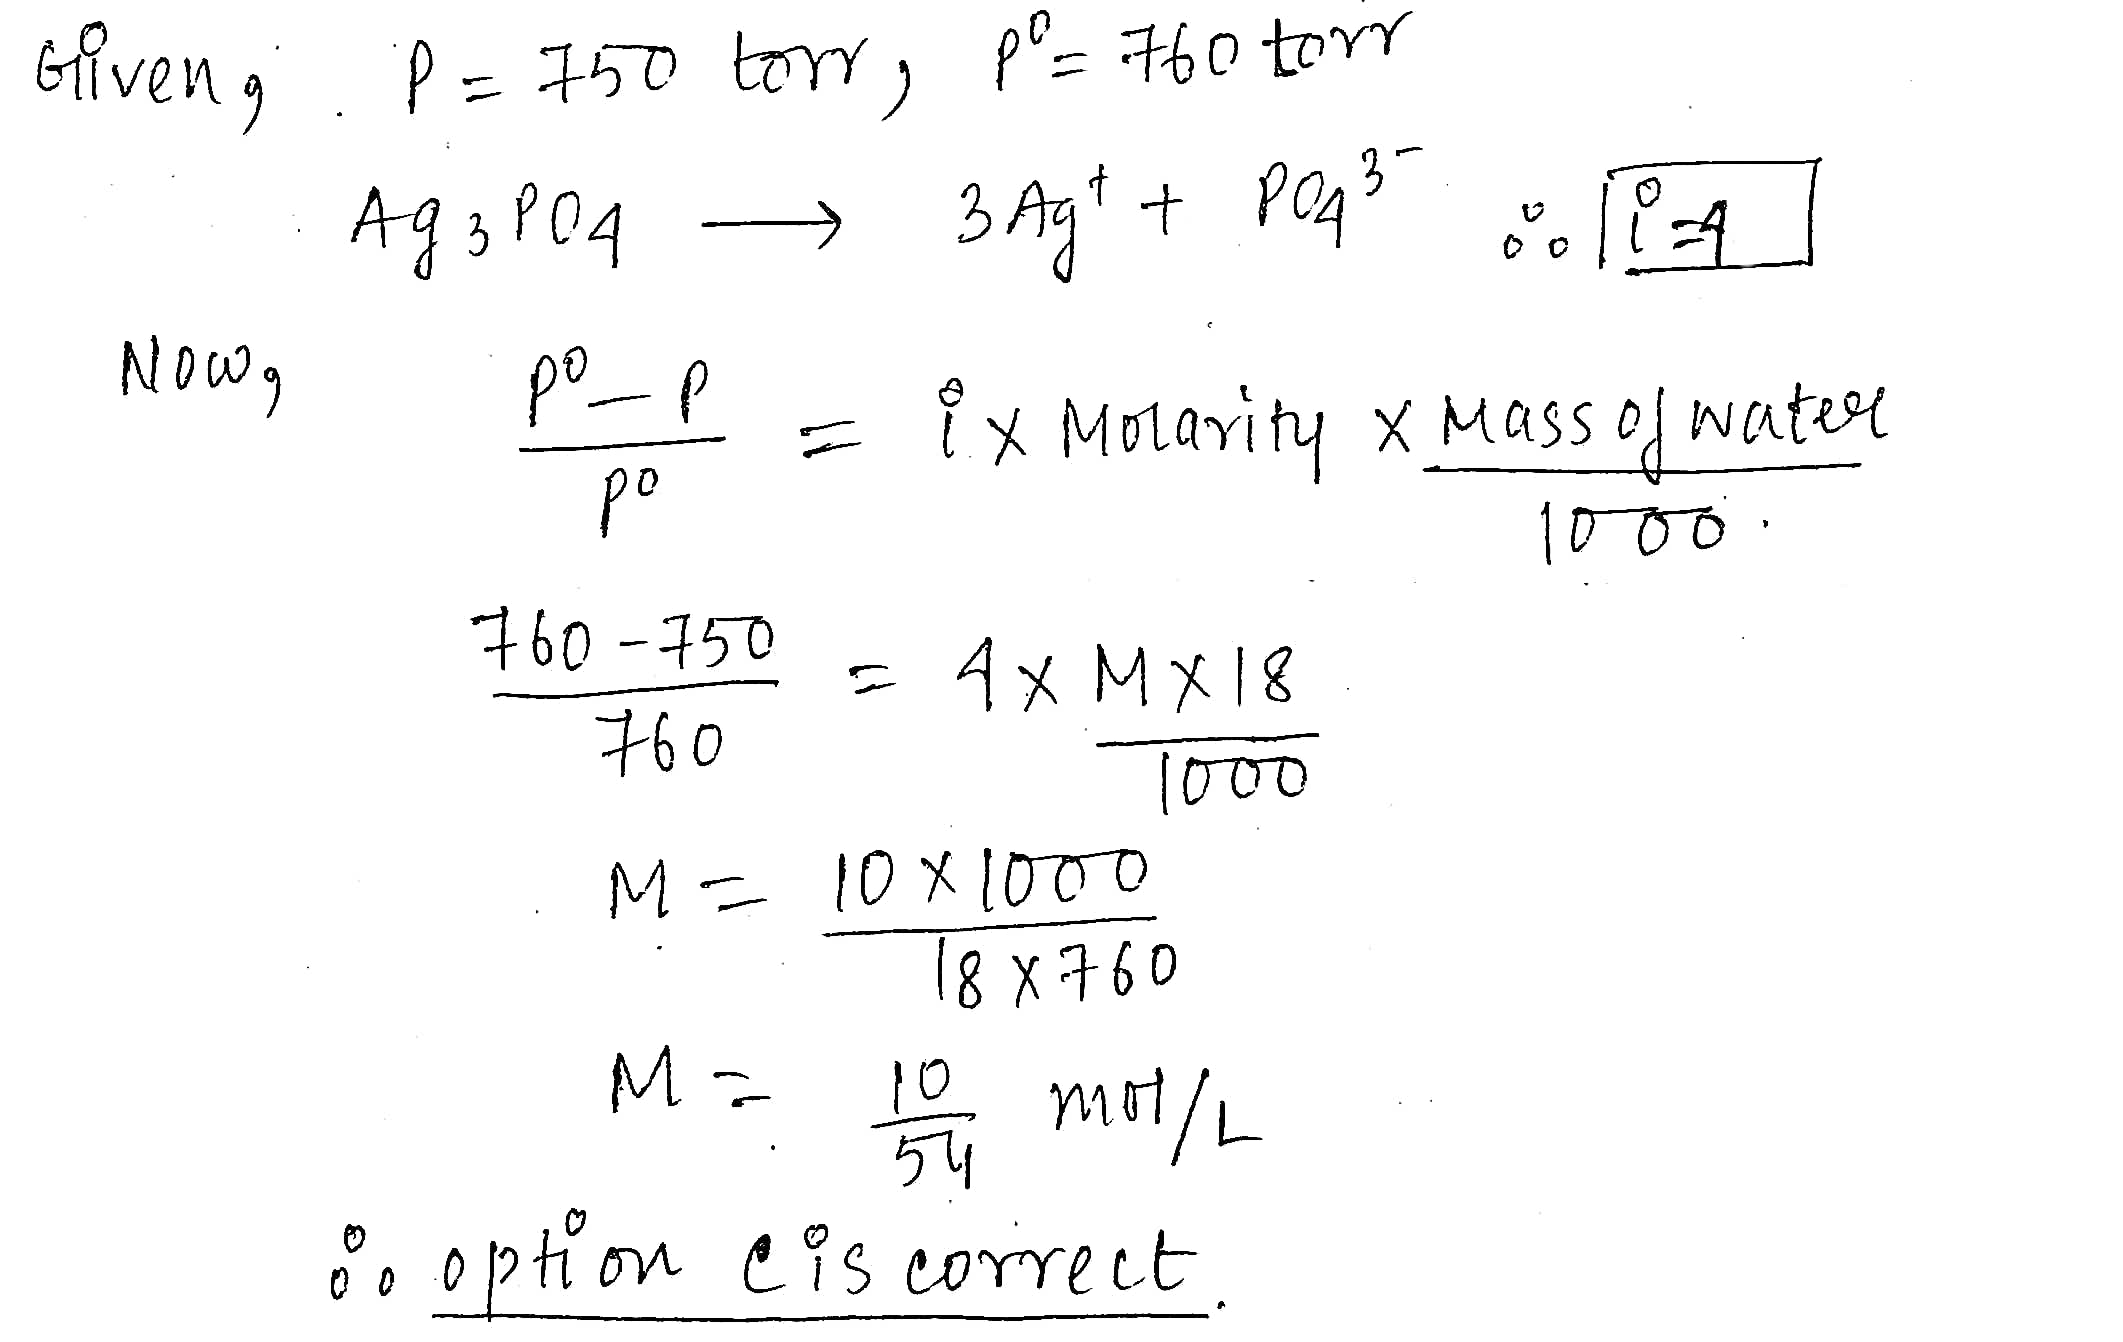 Given, P = 750 torr, P⁰ = 760 torr
Ag₃PO₄ ⟶ 3Ag⁺ + PO₄³⁻ ∴ i = 4
Now, (P⁰ − P)/P⁰ = i × Molarity × Mass of water/1000.
(760 − 750)/760 = 4 × M × 18/1000
M = (10 × 1000)/(18 × 760)
M = 10/54 mol/L
∴ option C is correct.